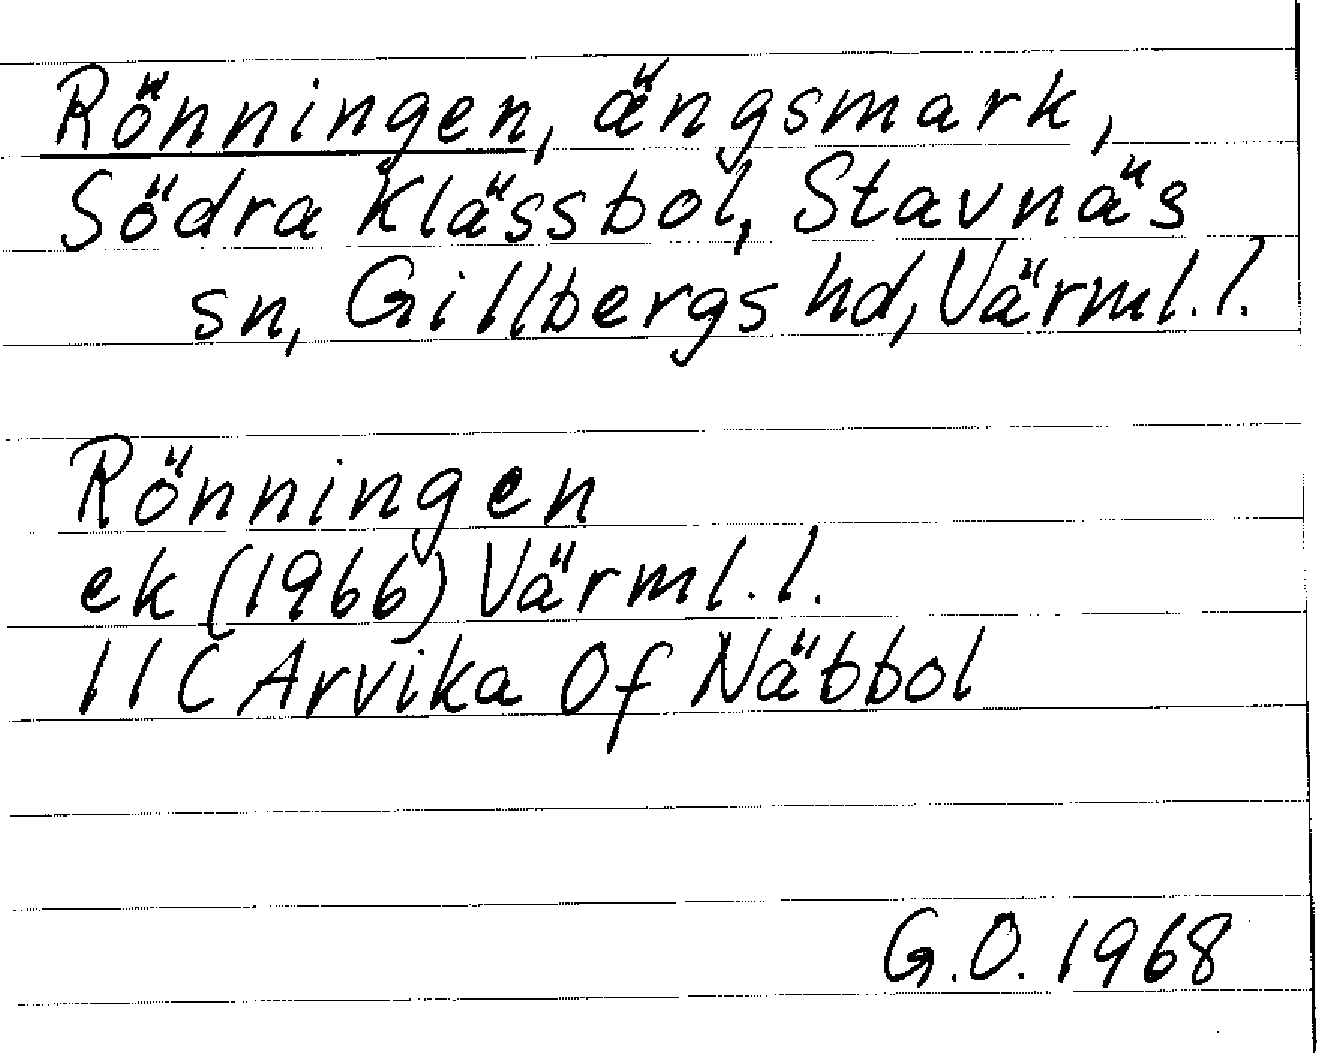 Rönningen, ängsmark,
Södra Klässbol, Stavnäs
sn, Gillbergs hd, Värml. l.
Rönningen
ek (1966) Värml. l.
11C Arvika 0f Näbbol
G.O. 1968